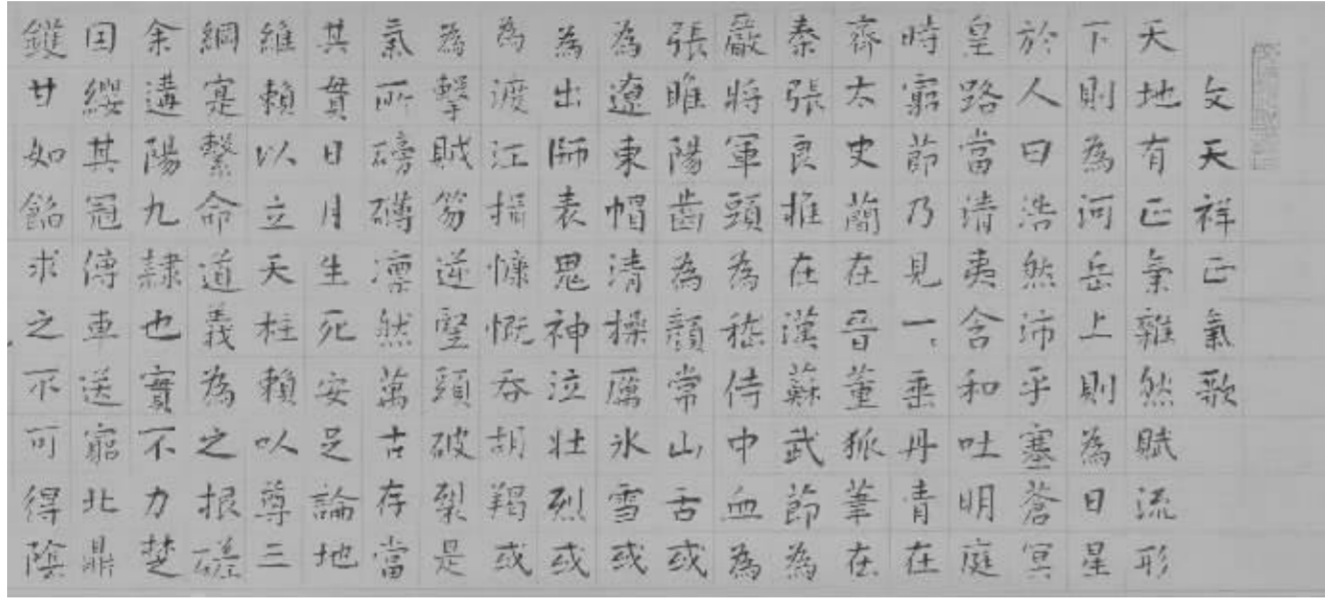 文天祥正氣歌
天地有正氣雜然賦流形
下則為河岳上則為日星
於人曰浩然沛乎塞蒼冥
皇路當清夷含和吐明庭
時窮節乃見一、垂丹青在
齊太史簡在晉董狐筆在
秦張良椎在漢蘇武節為
嚴將軍頭為嵇侍中血為
張睢陽齒為顏常山舌或
為遼東帽清操厲氷雪或
為出師表鬼神泣壯烈或
為渡江楫慷慨吞胡羯或
為擊賊笏逆豎頭破裂是
氣所磅礴凜然萬古存當
其貫日月生死安足論地
維賴以立天柱賴以尊三
綱寔繫命道義為之根磋
余遘陽九隸也實不力楚
囚纓其冠傳車送窮北鼎
鑊甘如飴求之不可得陰